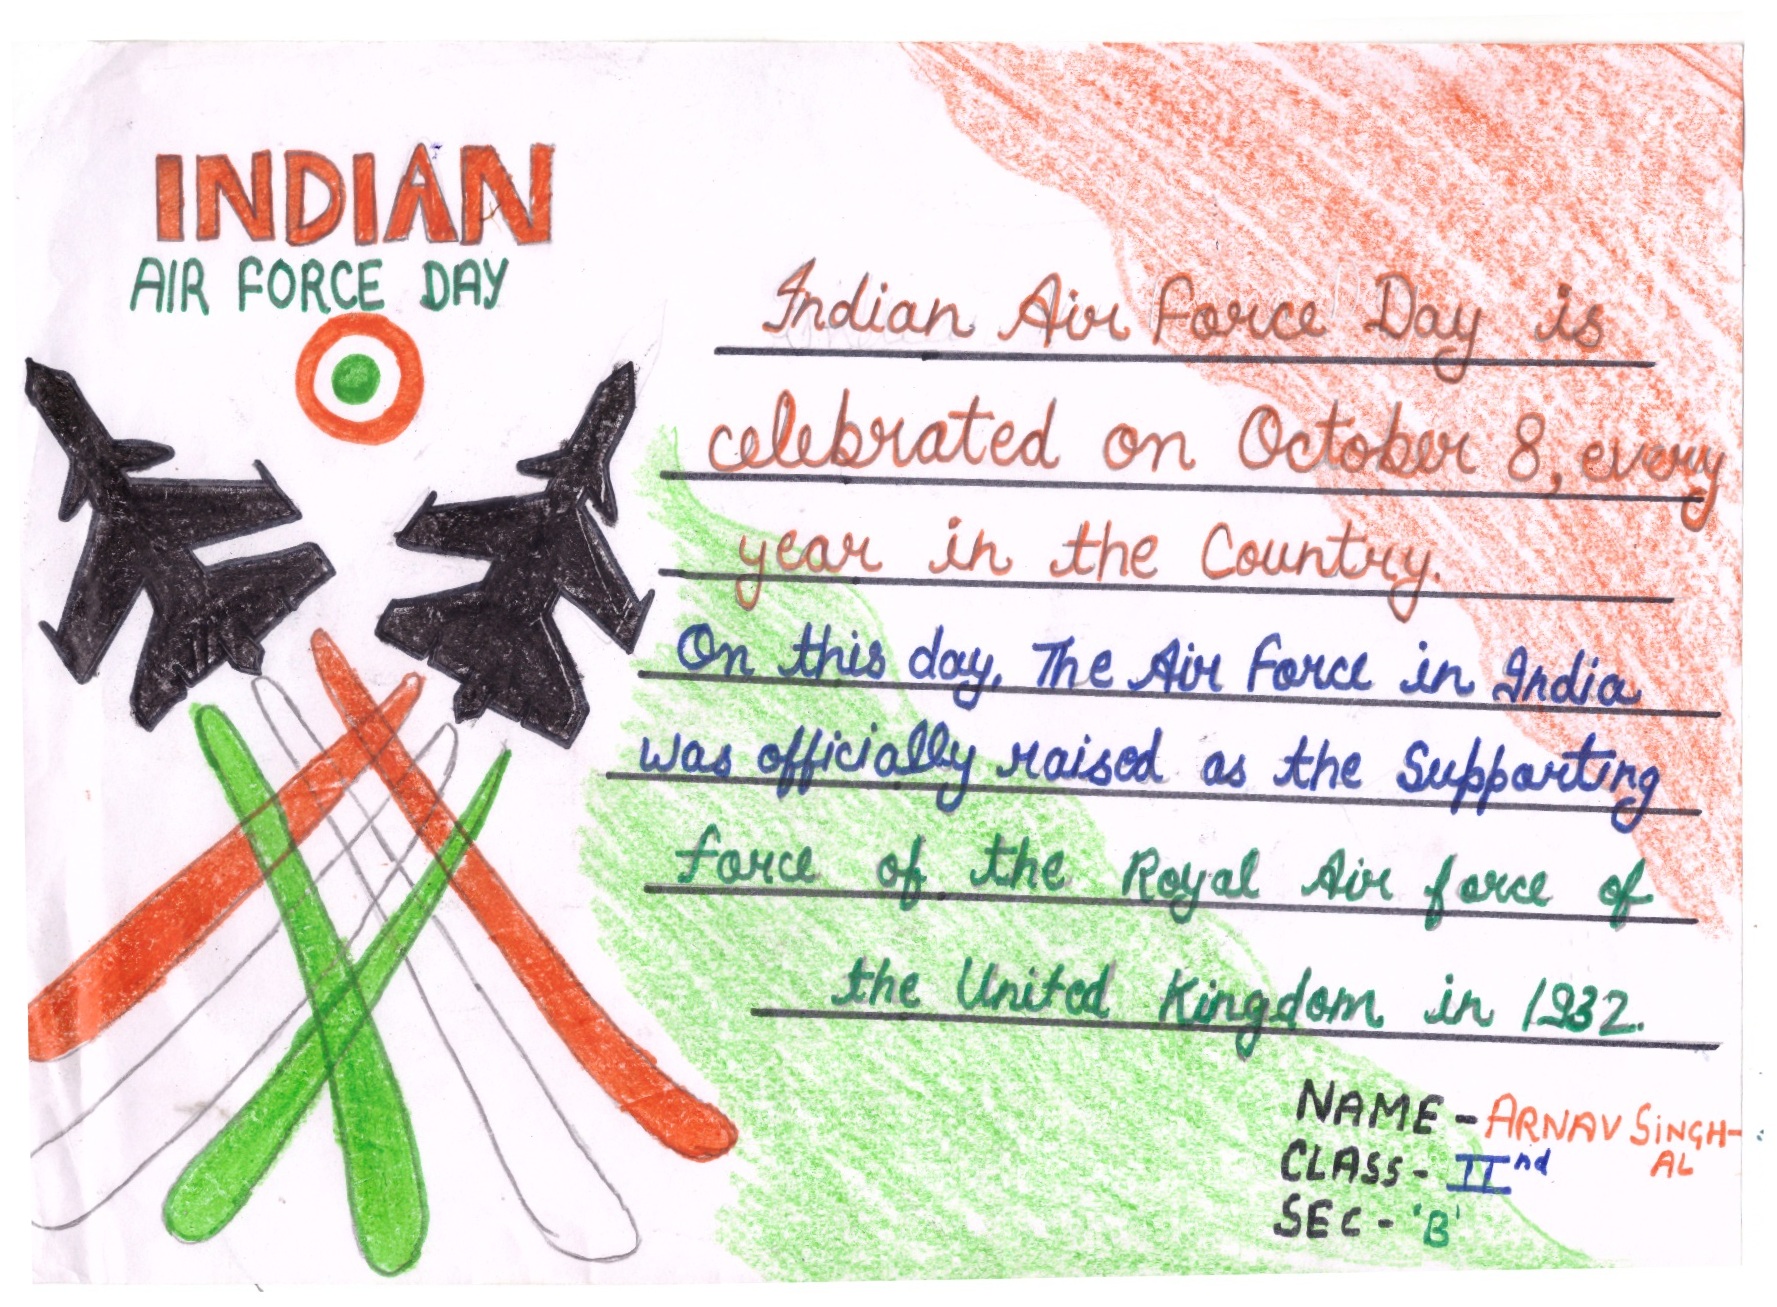 INDIAN
AIR FORCE DAY
Indian Air Force Day is
celebrated on October 8, every
year in the Country.
On this day, The Air Force in India
was officially raised as the Supporting
force of the Royal Air force of
the United Kingdom in 1932.
NAME - ARNAV SINGH-
AL
CLASS - IInd
SEC - 'B'